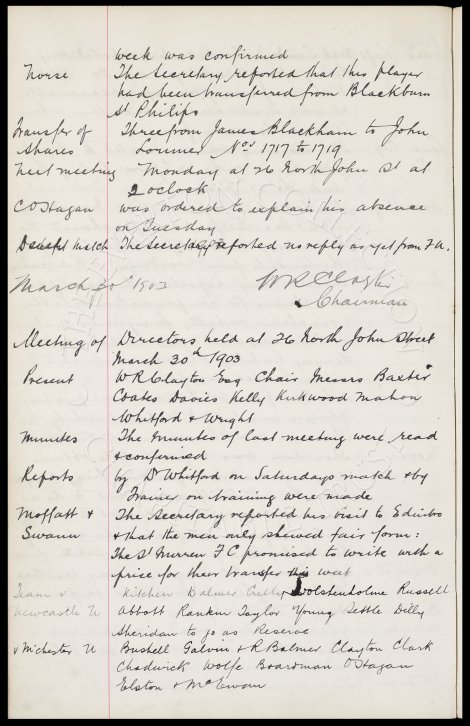 week was confirmed
Norse The Secretary reported that this player
had been transferred from Blackburn
St Philips
Transfer of Three from James Blackham to John
Shares Lorimer Nos 1717 to 1719
Next meeting Monday at 26 North John St at
2 oclock
C OHagan was ordered to explain his absence
on Tuesday
Benefit Match The Secretary reported no reply as yet from F.A.
March 30th 1903 WR Clayton
Chairman
Meeting of Directors held at 26 North John Street
March 30th 1903
Present WR Clayton Esq Chair Messrs Baxter
Coates Davies Kelly Kirkwood Mahon
Whitford & Wright
Minutes The Minutes of last meeting were read
& confirmed
Reports by Dr Whitford on Saturdays match & by
Trainer on training were made
Moffatt & The Secretary reported his visit to Edinbo
Swann & that the men only shewed fair form:
The St Mirren F C promised to write with a
price for their transfer this week
Team v Kitchen Balmer Crelly Wolstenholme Russell
Newcastle U Abbott Rankin Taylor Young Settle Dilly
Sheridan to go as Reserve
v Mchester U Bushell Galvin & R Balmer Clayton Clark
Chadwick Wolfe Boardman OHagan
Elston & McEwan